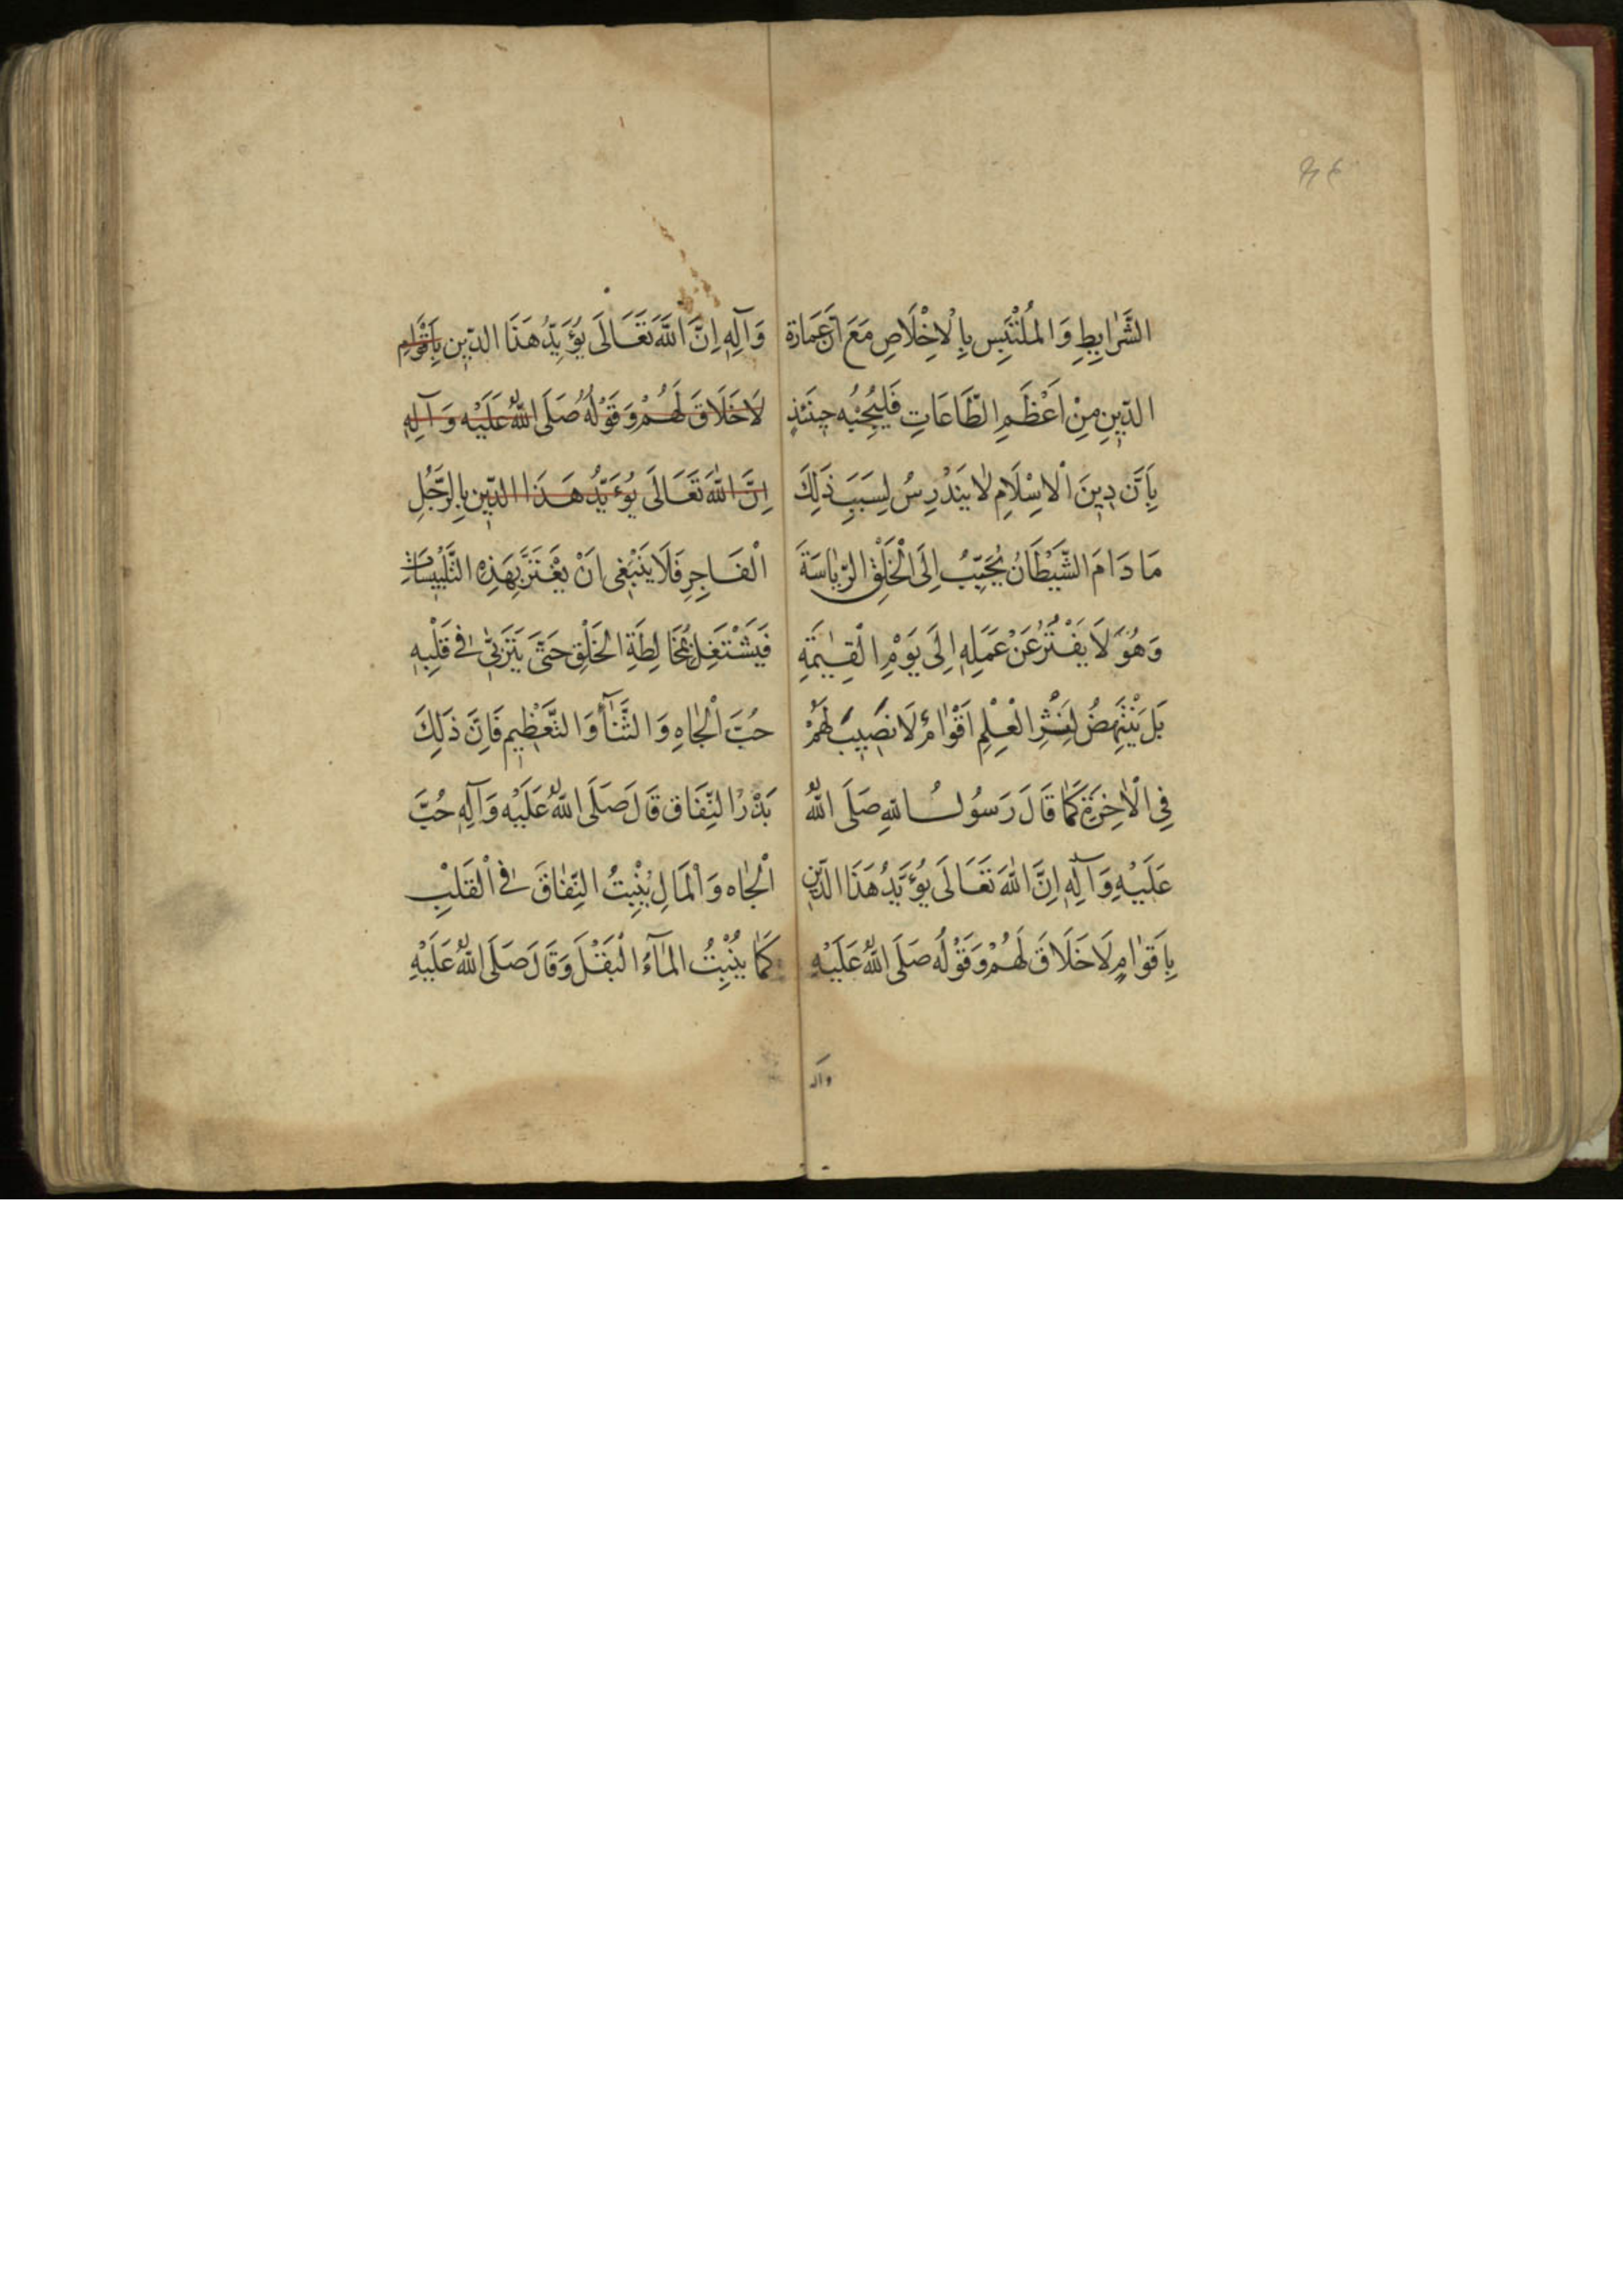 الشَّرَايِطِ وَالمُلْتَبِسِ بِالْاِخْلَاصِ مَعَ اَنَّ عِمَارَة
الدّٖينِ مِنْ اَعْظَمِ الطَّاعَاتِ فَلْيُجِبْهُ حٖينَئِذٍ
بِاَنَّ دٖينَ الْاِسْلَامِ لَا يَنْدَرِسُ لِسَبَبِ ذَلِكَ
مَا دَامَ الشَّيْطَانُ يُحَبِّبُ اِلَى الْخَلْقِ الرِّيَاسَةَ
وَهُوَ لَا يَفْتُرُ عَنْ عَمَلِهٖ اِلَى يَوْمِ الْقِيٰمَةِ
بَلْ يَنْتَهِضُ لِنَشْرِ الْعِلْمِ اَقْوَامٌ لَا نَصٖيبَ لَهُمْ
فِي الْاٰخِرَةِ كَمَا قَالَ رَسُولُ اللهِ صَلَّى اللهُ
عَلَيْهِ وَآلِهٖ اِنَّ اللهَ تَعَالَى يُؤَيِّدُ هَذَا الدّٖينَ
بِاَقْوَامٍ لَا خَلَاقَ لَهُمْ وَقَوْلُهُ صَلَّى اللهُ عَلَيْهِ
وآله
وَآلِهٖ اِنَّ اللهَ تَعَالَى يُؤَيِّدُ هَذَا الدّٖينَ بِاَقْوَامٍ
لَا خَلَاقَ لَهُمْ وَقَوْلُهُ صَلَّى اللهُ عَلَيْهِ وَآلِهٖ
اِنَّ اللهَ تَعَالَى يُؤَيِّدُ هَذَا الدّٖينَ بِالرَّجُلِ
الْفَاجِرِ فَلَا يَنْبَغٖي اَنْ يَغْتَرَّ بِهَذِهِ التَّلْبٖيسَاتِ
فَيَشْتَغِلَ بِمُخَالَطَةِ الْخَلْقِ حَتَّى يَتَرَبَّى فٖي قَلْبِهٖ
حُبَّ الْجَاهِ وَالثَّنَآءِ وَالتَّعْظٖيمِ فَاِنَّ ذَلِكَ
بَذْرُ النِّفَاقِ قَالَ صَلَّى اللهُ عَلَيْهِ وَآلِهٖ حُبُّ
الْجَاهِ وَالْمَالِ يُنْبِتُ النِّفَاقَ فِي الْقَلْبِ
كَمَا يُنْبِتُ الْمَآءُ الْبَقْلَ وَقَالَ صَلَّى اللهُ عَلَيْهِ